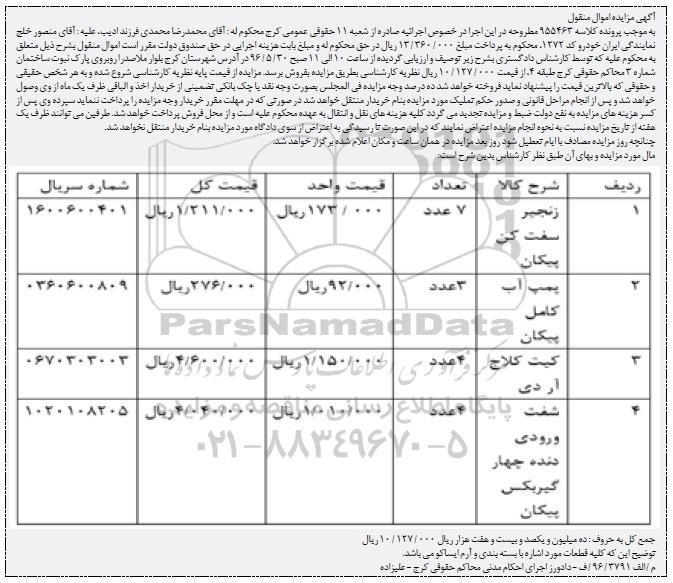 آگهی مزایده اموال منقول
به موجب پرونده کلاسه ۹۵۵۴۶۳ مطروحه در این اجرا در خصوص اجرائیه صادره از شعبه ۱۱ حقوقی عمومی کرج محکوم له : آقای محمدرضا محمدی فرزند ادیب، علیه : آقای منصور خلج
نمایندگی ایران خودرو کد ۱۲۷۲، محکوم به پرداخت مبلغ ۱۳/۳۶۰/۰۰۰ ریال در حق محکوم له و مبلغ بابت هزینه اجرایی در حق صندوق دولت مقرر است اموال منقول بشرح ذیل متعلق
به محکوم علیه که توسط کارشناس دادگستری بشرح زیر توصیف و ارزیابی گردیده از ساعت ۱۰ الی ۱۱ صبح ۹۶/۵/۳۰ در آدرس شهرستان کرج بلوار ملاصدرا روبروی پارک نبوت ساختمان
شماره ۳ محاکم حقوقی کرج طبقه ۴، از قیمت ۱۰/۱۲۷/۰۰۰ ریال نظریه کارشناسی بطریق مزایده بفروش برسد. مزایده از قیمت پایه نظریه کارشناسی شروع شده و به هر شخص حقیقی
و حقوقی که بالاترین قیمت را پیشنهاد نماید فروخته خواهد شد ده درصد وجه مزایده فی المجلس بصورت وجه نقد یا چک بانکی تضمینی از خریدار اخذ و الباقی ظرف یک ماه از وی وصول
خواهد شد و پس از انجام مراحل قانونی و صدور حکم تملیک مورد مزایده بنام خریدار منتقل خواهد شد در صورتی که در مهلت مقرر خریدار وجه مزایده را پرداخت ننماید سپرده وی پس از
کسر هزینه های مزایده به نفع دولت ضبط و مزایده تجدید می گردد کلیه هزینه های نقل و انتقال به عهده محکوم علیه است و از محل فروش پرداخت خواهد شد. طرفین می توانند ظرف یک
هفته از تاریخ مزایده نسبت به نحوه انجام مزایده اعتراض نمایند که در این صورت تا رسیدگی به اعتراض از سوی دادگاه مورد مزایده بنام خریدار منتقل نخواهد شد.
چنانچه روز مزایده مصادف با ایام تعطیل شود روز بعد مزایده در همان ساعت و مکان اعلام شده برگزار خواهد شد.
مال مورد مزایده و بهای آن طبق نظر کارشناس بدین شرح است:
ردیف شرح کالا تعداد قیمت واحد قیمت کل شماره سریال
۱ زنجیر سفت کن پیکان ۷ عدد ۱۷۳/۰۰۰ ریال ۱/۲۱۱/۰۰۰ ریال ۱۶۰۰۶۰۰۴۰۱
۲ پمپ آب کامل پیکان ۳عدد ۹۲/۰۰۰ریال ۲۷۶/۰۰۰ریال ۰۳۶۰۶۰۰۸۰۹
۳ کیت کلاج آر دی ۴عدد ۱/۱۵۰/۰۰۰ریال ۴/۶۰۰/۰۰۰ریال ۰۶۷۰۳۰۳۰۰۳
۴ شفت ورودی دنده چهار گیربکس پیکان ۴عدد ۱/۰۱۰/۰۰۰ریال ۴/۰۴۰/۰۰۰ریال ۱۰۲۰۱۰۸۲۰۵
ParsNamadData
پایگاه اطلاع رسانی مناقصه و مزایده
۰۲۱-۸۸۳۴۹۶۷۰-۵
جمع کل به حروف : ده میلیون و یکصد و بیست و هفت هزار ریال ۱۰/۱۲۷/۰۰۰ ریال
توضیح این که کلیه قطعات مورد اشاره با بسته بندی و آرم ایساکو می باشد.
م/الف ۹۶/۳۷۹۱/ف - دادورز اجرای احکام مدنی محاکم حقوقی کرج - علیزاده